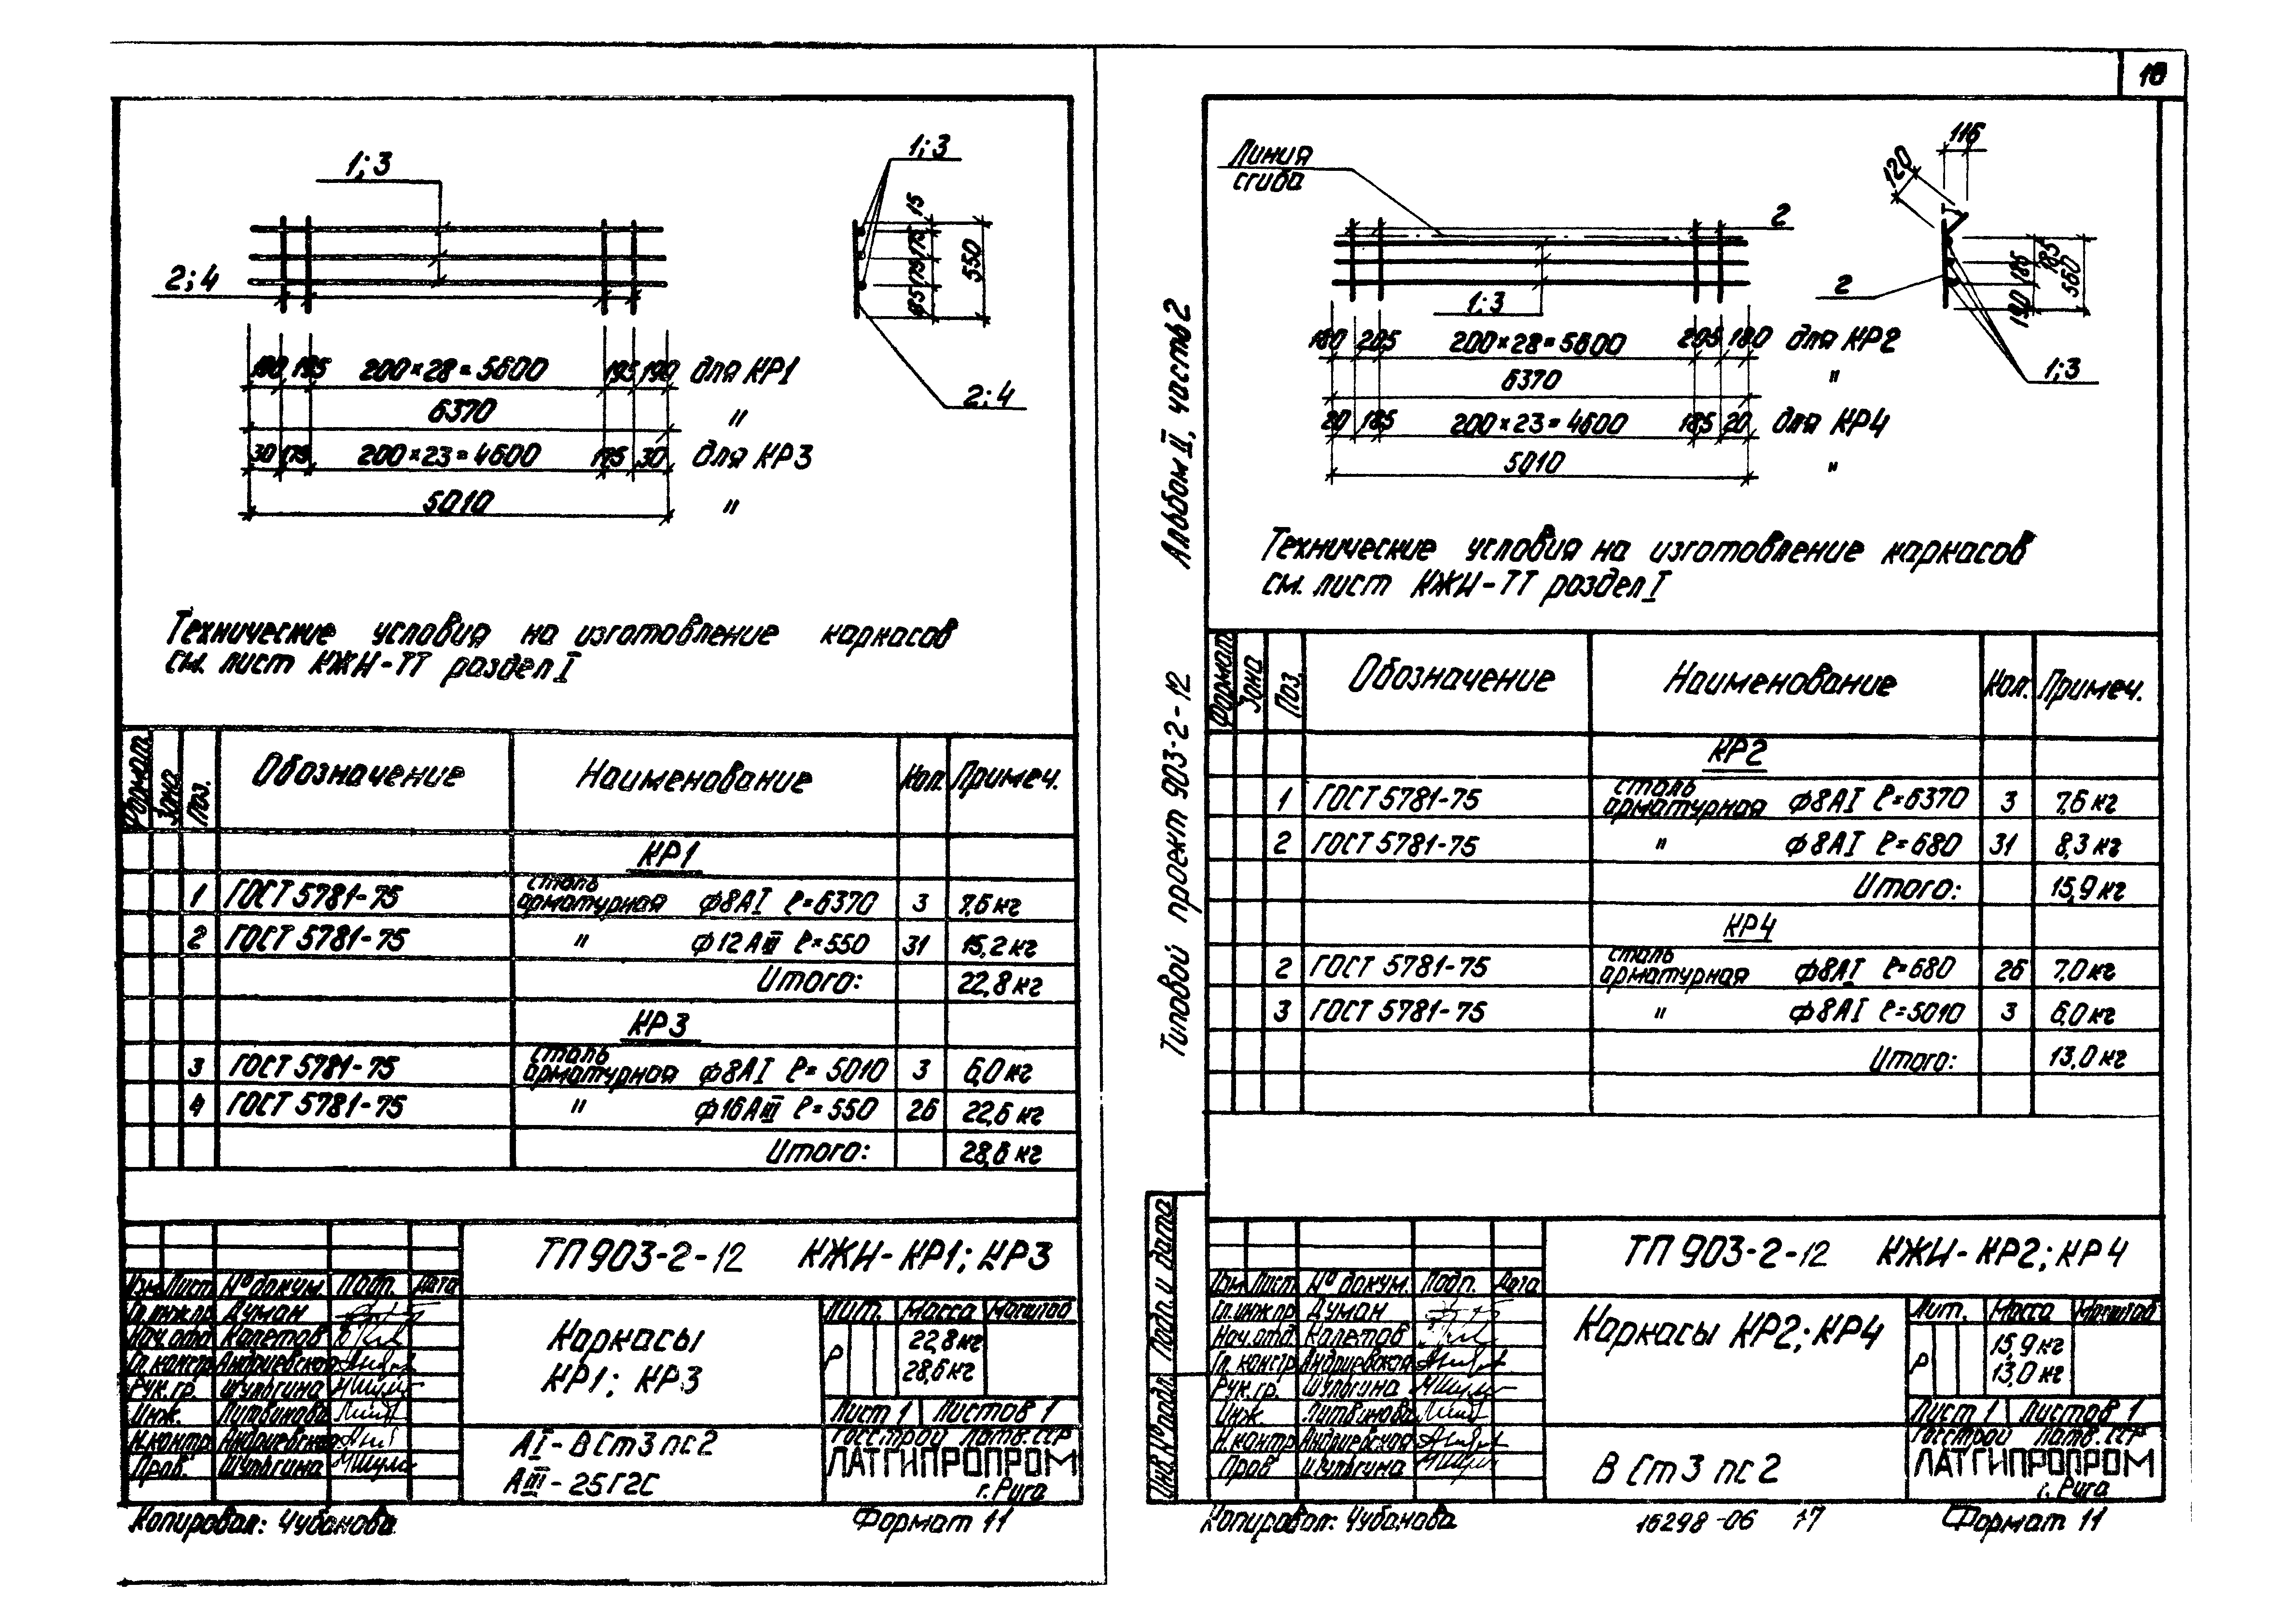 10
1;3
1;3
2;4
15
175
175
185
550
2;4
190 195 200×28=5600 195 190 для КР1
6370 "
30 175 200×23=4600 175 30 для КР3
5010 "
Технические условия на изготовление каркасов
см. лист КЖИ-ТТ раздел I
Формат Зона Поз. Обозначение Наименование Кол. Примеч.
КР1
1 ГОСТ 5781-75 сталь арматурная ф8АI ℓ=6370 3 7,6 кг
2 ГОСТ 5781-75 " ф12АIII ℓ=550 31 15,2 кг
Итого: 22,8 кг
КР3
3 ГОСТ 5781-75 сталь арматурная ф8АI ℓ=5010 3 6,0 кг
4 ГОСТ 5781-75 " ф16АIII ℓ=550 26 22,6 кг
Итого: 28,6 кг
ТП 903-2-12 КЖИ-КР1; КР3
Изм. Лист № докум. Подп. Дата
Гл.инж.пр. Думан
Нач.отд. Калетов
Гл.констр. Андриевская
Рук.гр. Шульгина
Инж. Литвинова
Н.контр. Андриевская
Пров. Шульгина
Каркасы
КР1; КР3
Лит. Масса Масштаб
Р 22,8 кг
28,6 кг
Лист 1 Листов 1
АI-ВСт3пс2
АIII-25Г2С
Госстрой Латв. ССР
ЛАТГИПРОПРОМ
г. Рига
Копировал: Чубанова Формат 11
Альбом II, часть 2
Типовой проект 903-2-12
Линия
сгиба
2
1;3
116
120
185
185
190
560
2
1;3
180 205 200×28=5600 205 180 для КР2
6370 "
20 185 200×23=4600 185 20 для КР4
5010 "
Технические условия на изготовление каркасов
см. лист КЖИ-ТТ раздел I
Формат Зона Поз. Обозначение Наименование Кол. Примеч.
КР2
1 ГОСТ 5781-75 сталь арматурная ф8АI ℓ=6370 3 7,6 кг
2 ГОСТ 5781-75 " ф8АI ℓ=680 31 8,3 кг
Итого: 15,9 кг
КР4
2 ГОСТ 5781-75 сталь арматурная ф8АI ℓ=680 26 7,0 кг
3 ГОСТ 5781-75 " ф8АI ℓ=5010 3 6,0 кг
Итого: 13,0 кг
Инв.№ подл. Подп. и дата
ТП 903-2-12 КЖИ-КР2; КР4
Изм. Лист № докум. Подп. Дата
Гл.инж.пр. Думан
Нач.отд. Калетов
Гл.констр. Андриевская
Рук.гр. Шульгина
Инж. Литвинова
Н.контр. Андриевская
Пров. Шульгина
Каркасы КР2; КР4
Лит. Масса Масштаб
Р 15,9 кг
13,0 кг
Лист 1 Листов 1
ВСт3пс2
Госстрой Латв. ССР
ЛАТГИПРОПРОМ
г. Рига
Копировал: Чубанова 16298-06 17 Формат 11